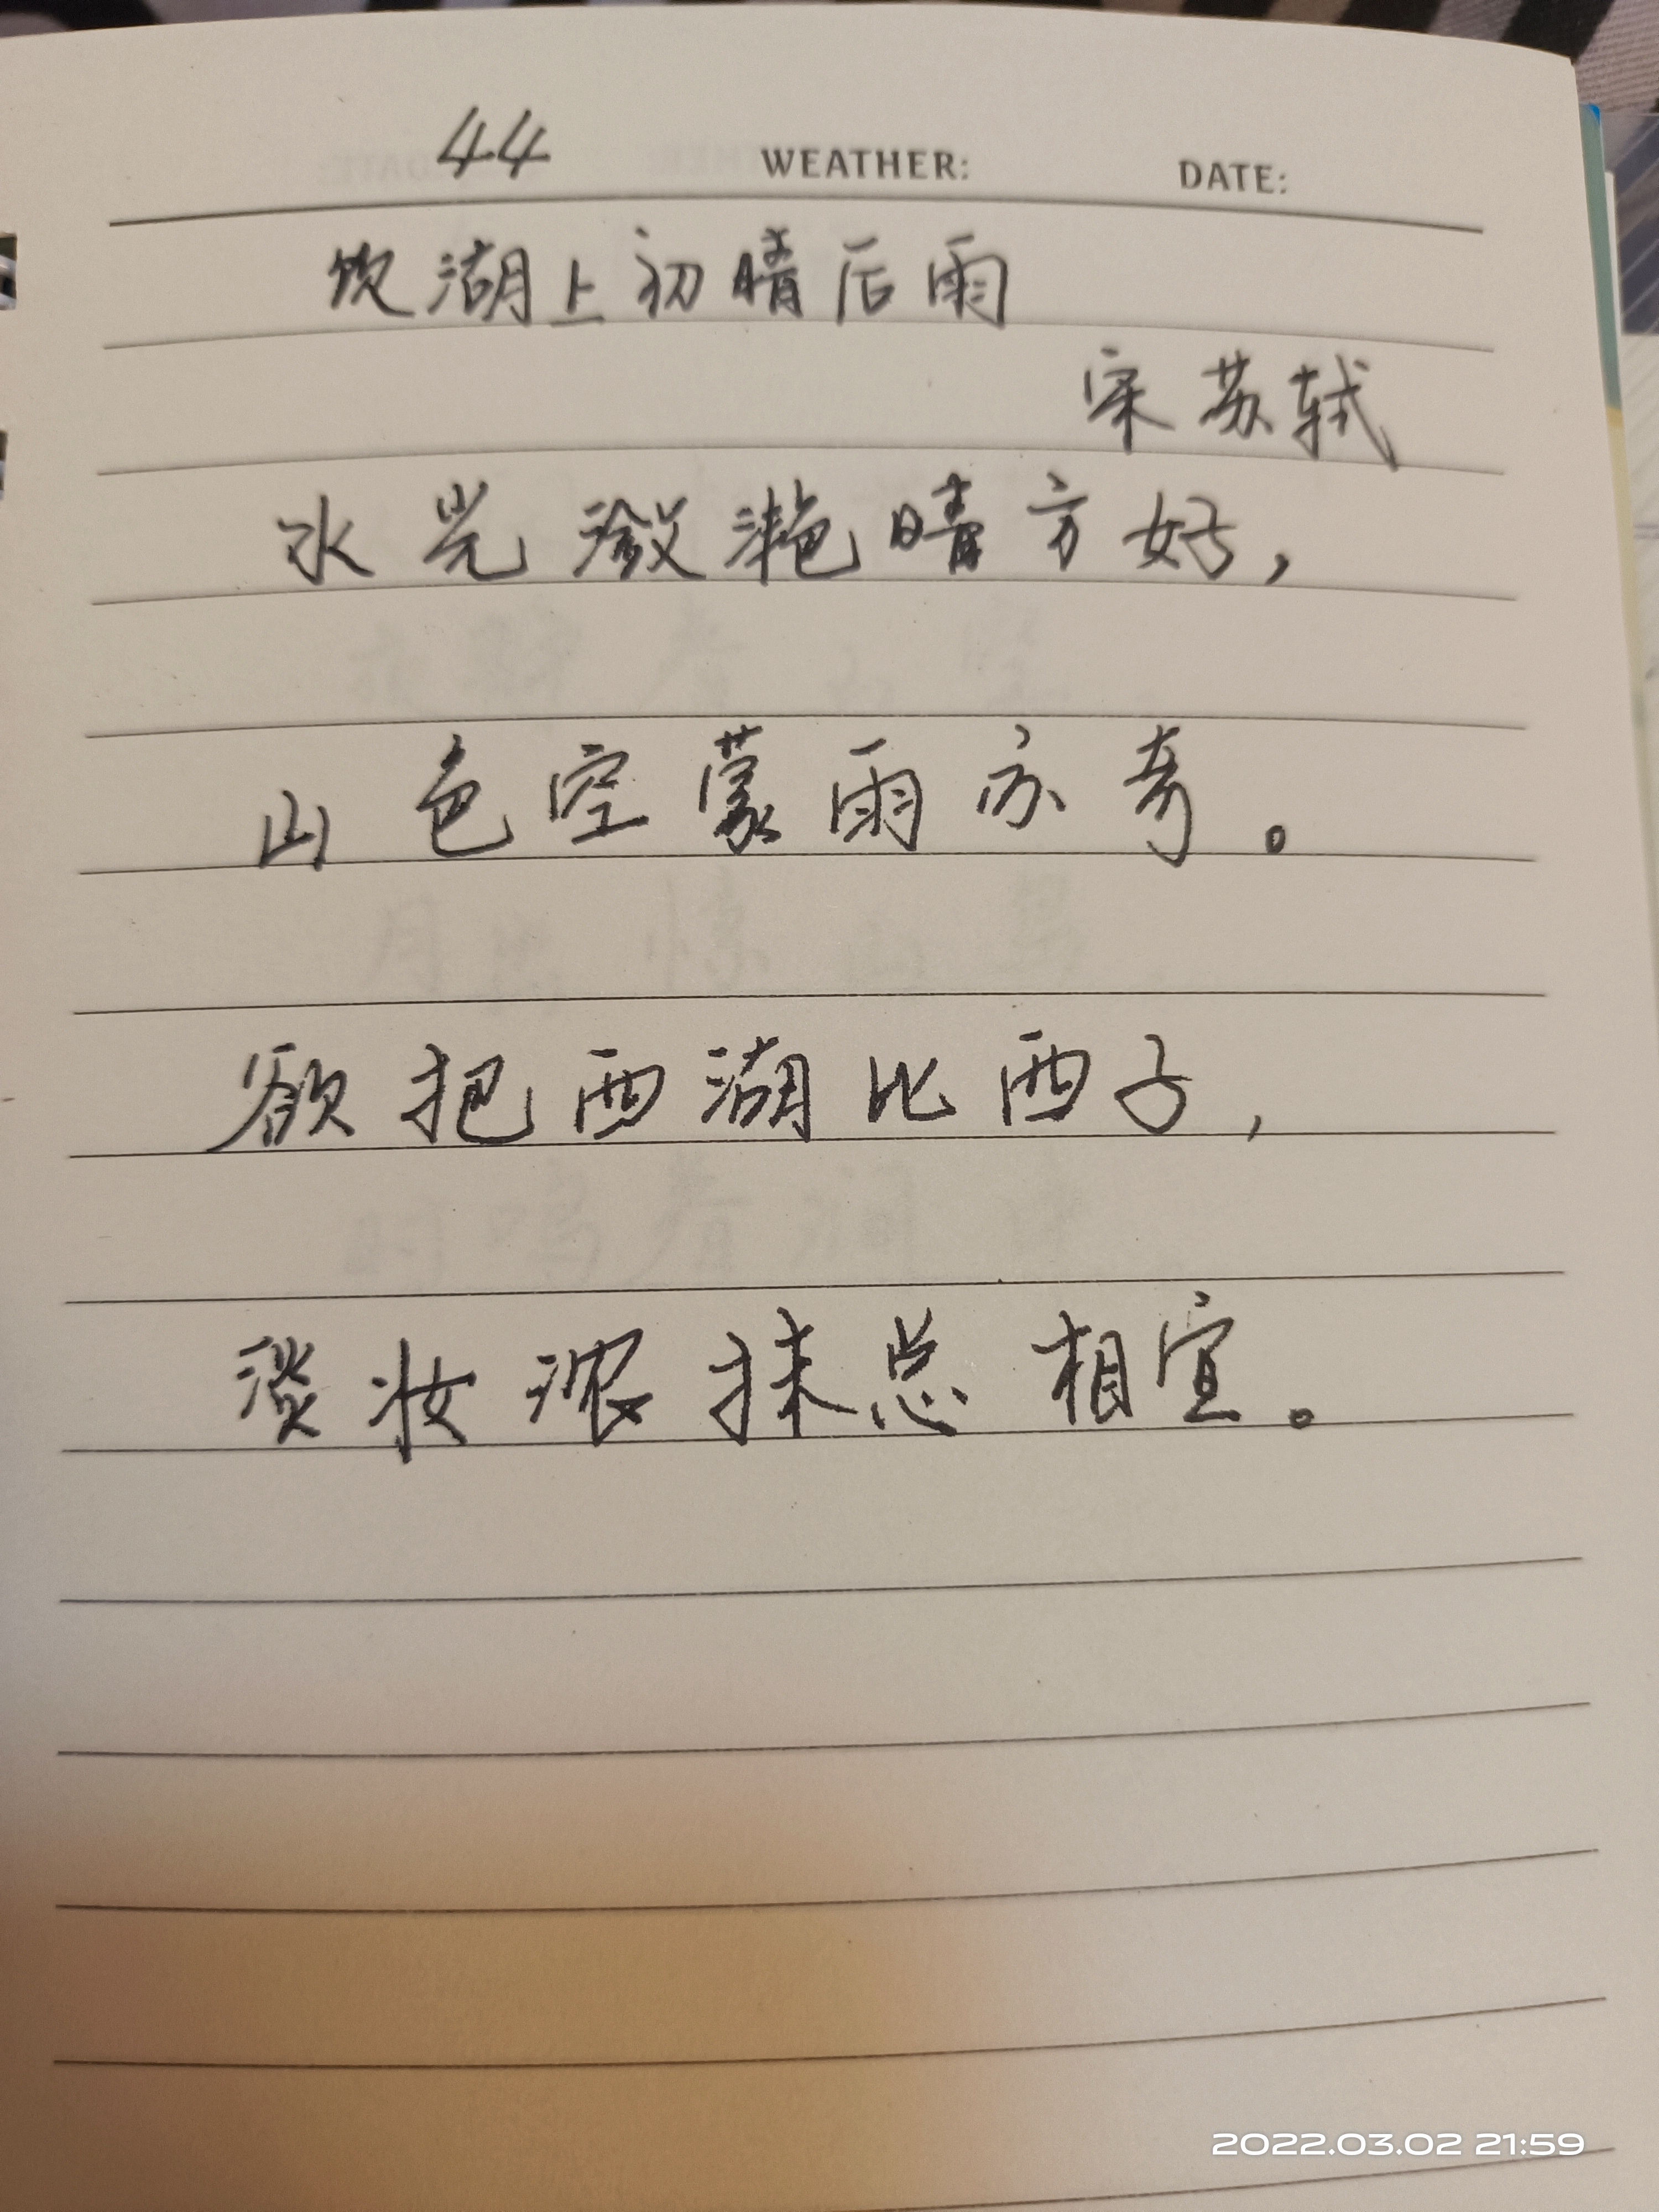 44 WEATHER: DATE:
饮湖上初晴后雨
宋 苏轼
水光潋滟晴方好，
山色空蒙雨亦奇。
欲把西湖比西子，
淡妆浓抹总相宜。
2022.03.02 21:59